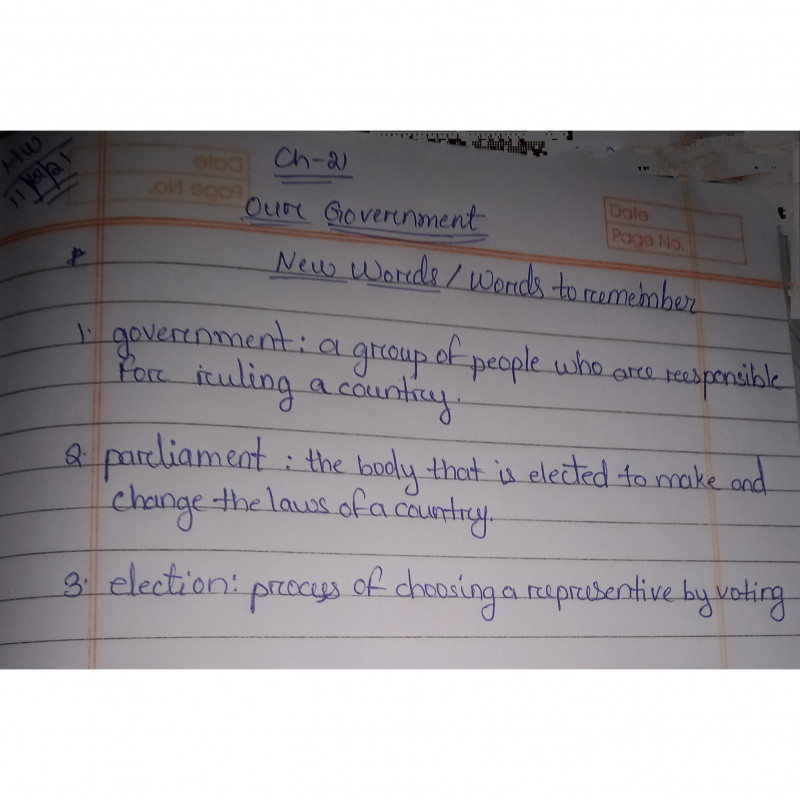 HW
11/12/21
Ch-2
Our Government
Date
Page No.
New Words / Words to remember
1. government: a group of people who are responsible
for ruling a country.
2. parliament : the body that is elected to make and
change the laws of a country.
3. election: process of choosing a representive by voting